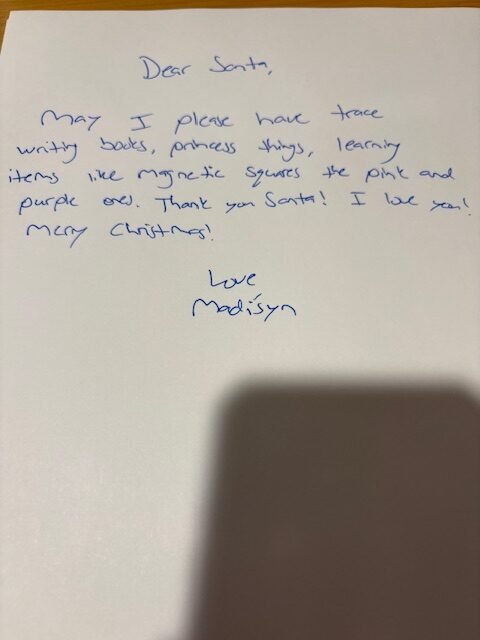 Dear Santa,
May I please have trace
writing books, princess things, learning
items like magnetic squares the pink and
purple ones. Thank you Santa! I love you!
Merry Christmas!
Love
Madisyn